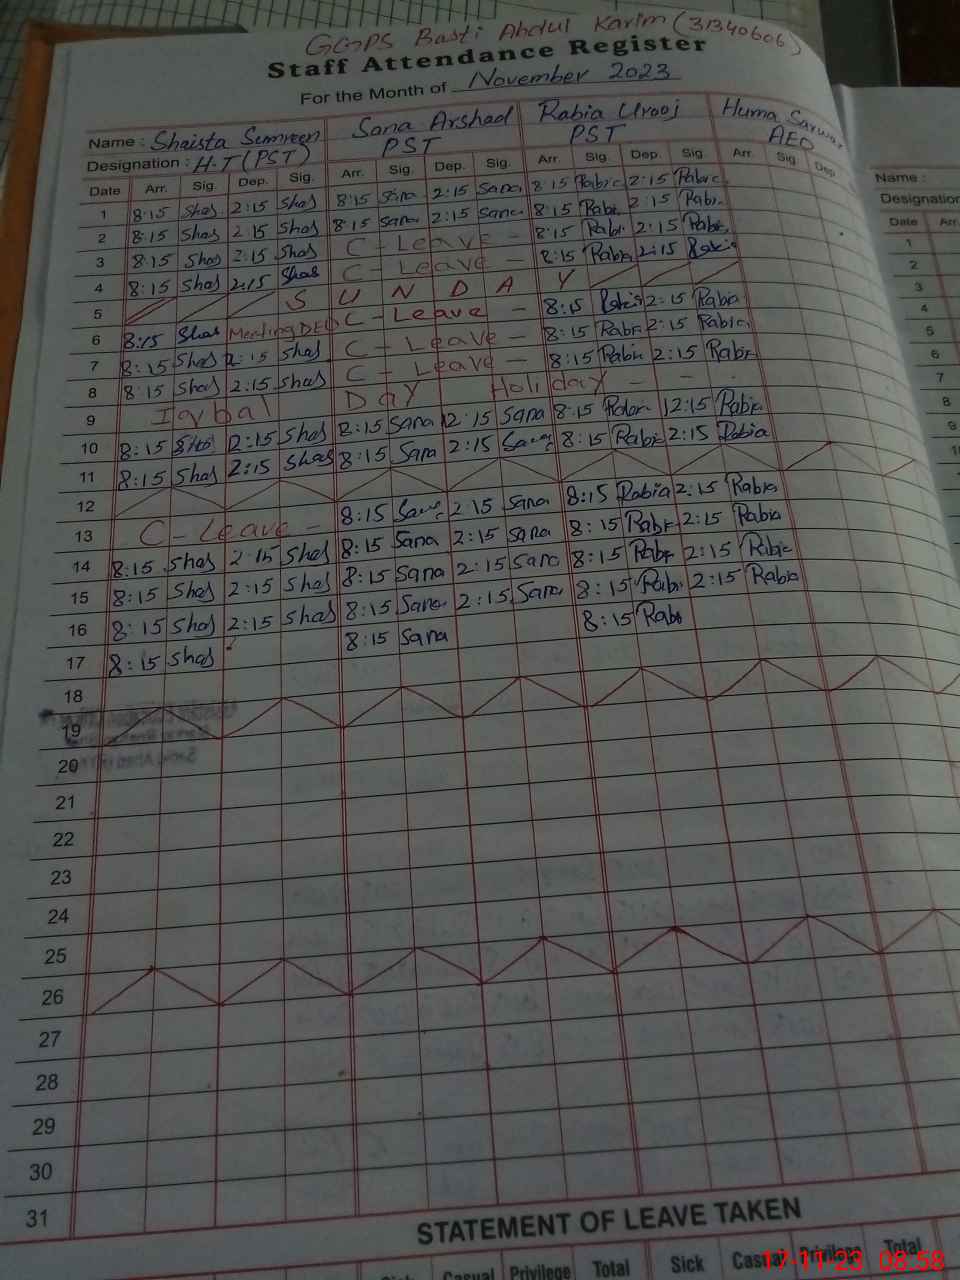 GGPS Basti Abdul Karim (31340606)
Staff Attendance Register
For the Month of November 2023
Name : Shaista Sumreen Sana Arshad Rabia Urooj Huma Sarwar
Designation : H.T (PST) PST PST AEO
Date Arr. Sig. Dep. Sig. Arr. Sig. Dep. Sig. Arr. Sig. Dep. Sig. Arr. Sig. Dep.
Name :
Designation
Date Arr.
1 8:15 Shas 2:15 Shas 8:15 Sana 2:15 Sana 8:15 Rabia 2:15 Rabia
2 8:15 Shas 2:15 Shas 8:15 Sana 2:15 Sana 8:15 Rabi 2:15 Rabi
3 8:15 Shas 2:15 Shas C - Leave - 8:15 Rabi 2:15 Rabi
4 8:15 Shas 2:15 Shas C - Leave - 8:15 Rabia 2:15 Rabia
5 S U N D A Y
6 8:15 Shas Meeting DEO C - Leave - 8:15 Rabia 2:15 Rabia
7 8:15 Shas 2:15 Shas C - Leave - 8:15 Rabi 2:15 Rabia
8 8:15 Shas 2:15 Shas C - Leave - 8:15 Rabi 2:15 Rabi
9 Iqbal Day Holiday - - -
10 8:15 Shas 2:15 Shas 8:15 Sana 2:15 Sana 8:15 Rabi 12:15 Rabia
11 8:15 Shas 2:15 Shas 8:15 Sana 2:15 Sana 8:15 Rabi 2:15 Rabia
12
13 C - Leave - 8:15 Sana 2:15 Sana 8:15 Rabia 2:15 Rabia
14 8:15 Shas 2:15 Shas 8:15 Sana 2:15 Sana 8:15 Rabi 2:15 Rabia
15 8:15 Shas 2:15 Shas 8:15 Sana 2:15 Sana 8:15 Rabi 2:15 Rabia
16 8:15 Shas 2:15 Shas 8:15 Sana 2:15 Sana 8:15 Rabi 2:15 Rabia
17 8:15 Shas 8:15 Sana 8:15 Rabi
18
19
20
21
22
23
24
25
26
27
28
29
30
31
1
2
3
4
5
6
7
8
9
STATEMENT OF LEAVE TAKEN
Sick Casual Privilege Total Sick Casual Privilege Total
17-11-23 08:58